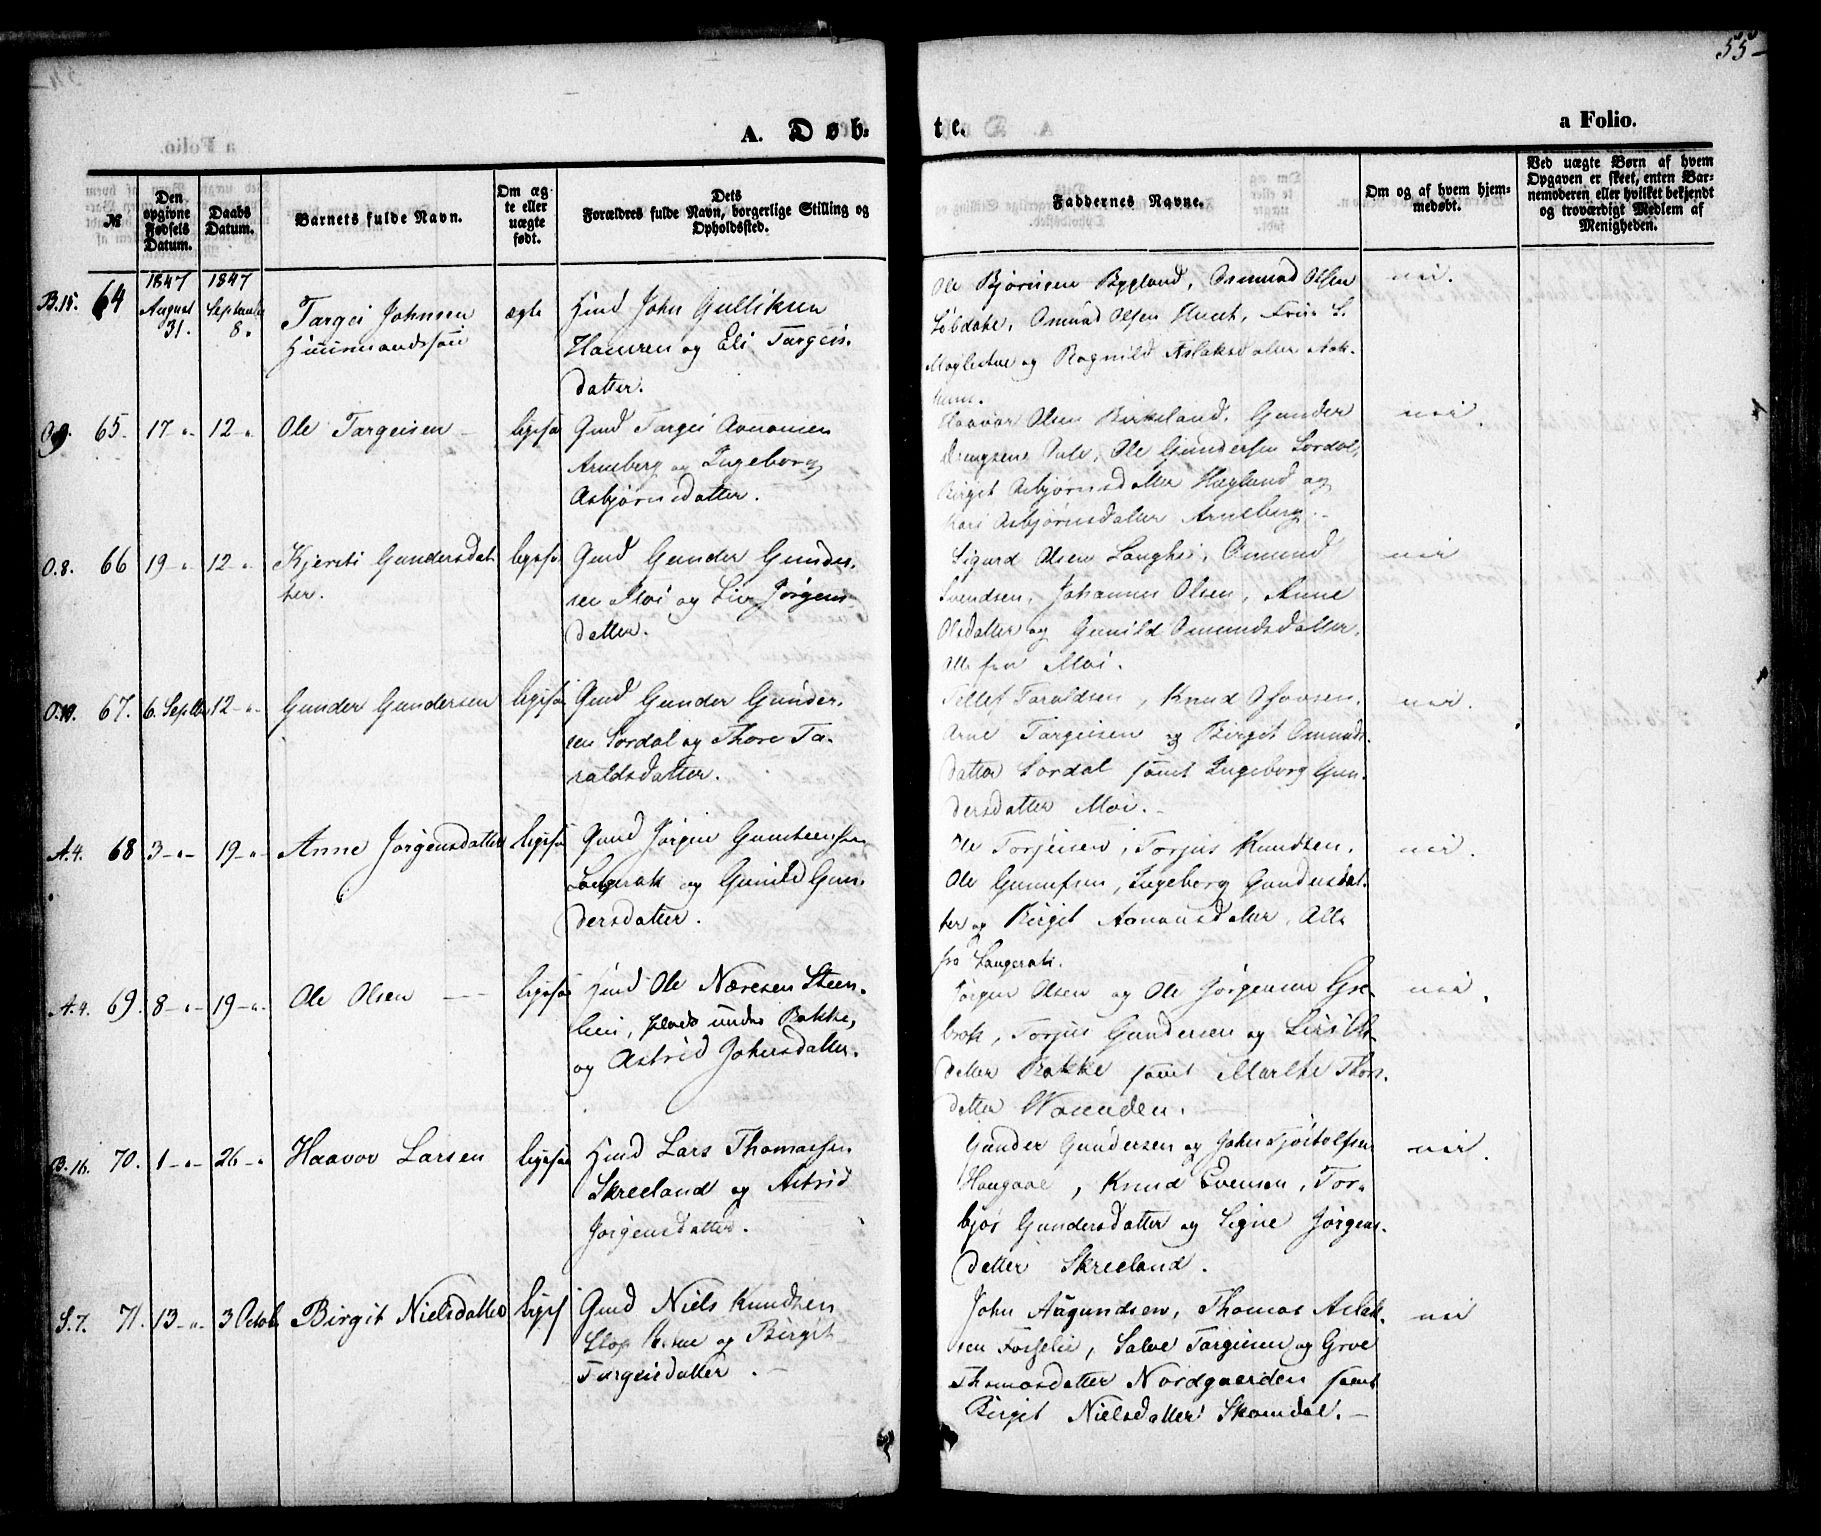 55
A. Døb-
te.
a Folio.
№
Den opgivne Fødsels Datum.
Daabs Datum.
Barnets fulde Navn.
Om ægte eller uægte født.
Dets Forældres fulde Navn, borgerlige Stilling og Opholdssted.
Faddernes Navne.
Om og af hvem hjemmedøbt.
Ved uægte Børn af hvem Opgaven er skeet, enten Barnemoderen eller hvilket bekjendt og troværdigt Medlem af Menigheden.
B.15. 64
1847 August 31.
1847 September 8.
Targei Johnsen
ægte
John Gulliksen
og Eli Targeis-
datter.
Ole Bjørnsen Bygland, Osmund Olsen
Osmund Olsen
og Ragnild Aslaksdatter
O.9. 65. 17 - " - 12 - "
Ole Targeisen
ligesaa
Gmd Targei Aanonsen
Arneberg og Ingeborg
Asbjørnsdatter.
Haavor Olsen Birkeland, Gunder
Ole Gundersen Sordal,
Birgit Asbjørnsdatter Hægland og
Kari Asbjørnsdatter Arneberg.
O.8. 66 19 - " 12 - "
Kjersti Gundersdat-
ter.
ligesaa
Gmd Gunder Gunder-
sen Moi og Liv Jørgens-
datter.
Sigurd Olsen Langhei, Osmund
Svendsen, Johannes Olsen, Anne
Olsdatter og Gunild Osmundsdatter,
Alle fra Moi.
O.10. 67. 6. Septbr 12 - " -
Gunder Gundersen
ligesaa
Gmd Gunder Gunder-
sen Sordal og Thore Ta-
raldsdatter.
Tellef Taraldsen, Knud
Arne Targeisen og Birgit Osmunds-
datter Sordal samt Ingeborg Gun-
dersdatter Moi. -
A.4. 68 3 - " - 19 - " -
Anne Jørgensdatter
ligesaa
Gmd Jørgen Gunsteensen
Langerak og Gunild Gun-
dersdatter.
Ole Torjeisen, Torjus Knudsen,
Ole Gunufsen, Ingeborg Gundersdat-
ter og Birgit Aanonsdatter, Alle
fra Langerak.
A.4. 69. 8 - " - 19 - " -
Ole Olsen
ligesaa
Ole Næresen Steen-
heii, plads under Bakke,
og Astrid Johnsdatter.
Jørgen Olsen og Ole Jørgensen Gre-
brok, Torjus Gundersen og
datter Bakke samt Marthe Thors-
datter
B.16. 70. 1 - " - 26 - "
Haavor Larsen
ligesaa
Lars Thomassen
Skreeland og Astrid
Jørgensdatter.
Gunder Gundersen og John Tjøstolfsen
Haugaae, Knud Evensen, Tor-
bjør Gundersdatter og Signe Jørgens-
datter Skreeland.
S.7. 71. 13 - " - 3 Octob
Birgit Nielsdatter
liges
Gmd Niels Knudsen
og Birgit
Targeisdatter. -
John Augundsen, Thomas Aslak-
sen Fosselie, Salve Targiesen og Groe
Thomasdatter Nordgaarden samt
Birgit Nielsdatter Skomdal. -